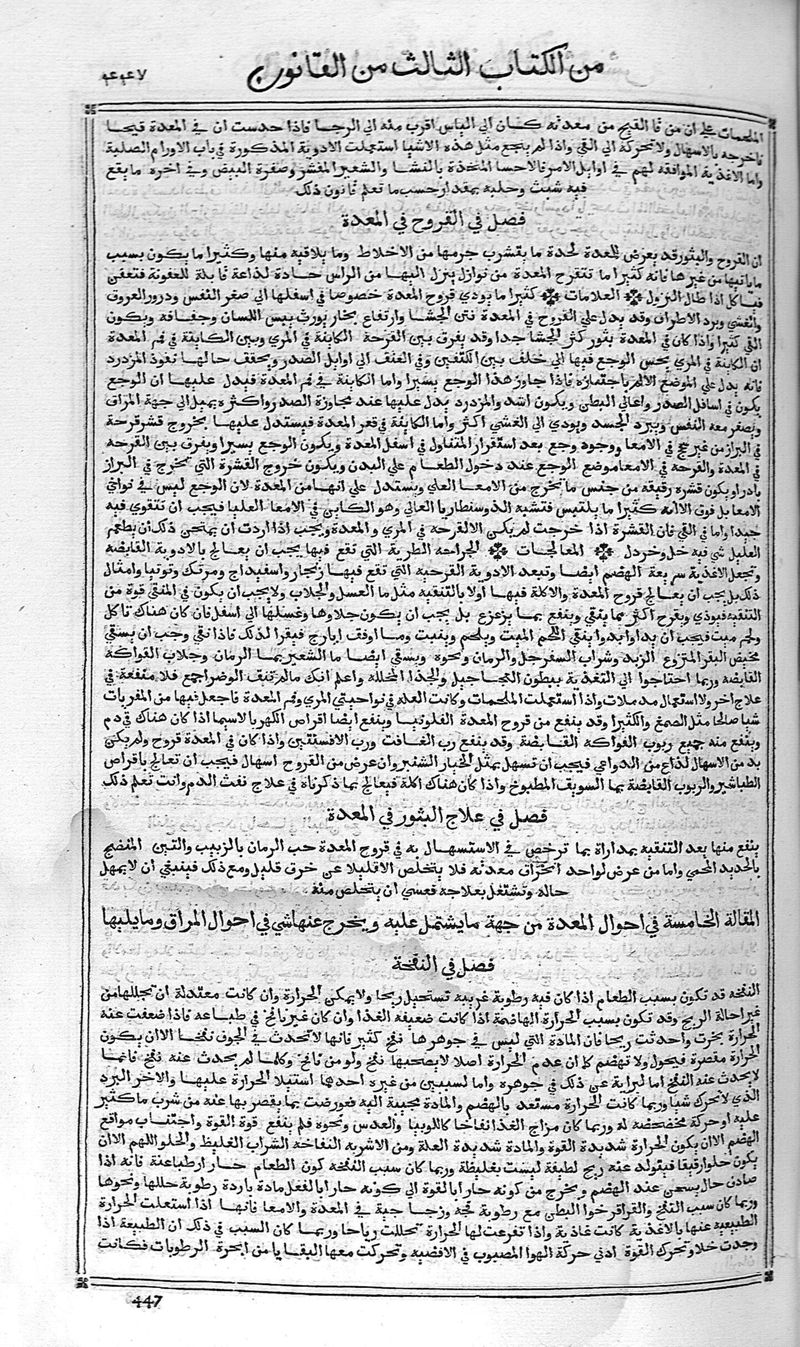 من الكتاب الثالث من القانون ٤٤٧
الملحمات على ان من قا القيح من معدته كان الي الياس اقرب منه الي الرجا فاذا حدست ان في المعدة قيحا
فاخرجه بالاسهال ولا تحركه الي القي واذا لم ينجع مثل هذه الاشيا استعملت الادوية المذكورة في باب الاورام الصلبة
واما الاغذية الموافقة لهم في اوايل الامر فالاحسا المتخذة بالنشا والشعير المقشر وصفرة البيض وفي اخره ما يقع
فيه شبث وحلبه بمقدار حسب ما تعلم قانون ذلك
فصل في القروح في المعدة
ان القروح والبثور قد يعرض للمعدة لحدة ما يتشرب جرمها من الاخلاط وما يلاقيه منها وكثيرا ما يكون بسبب
ما ياتيها من غيرها فانه كثيرا ما تتقرح المعدة من نوازل ينزل اليها من الراس حادة لذاعة قابلة للعفونة فتعفن
فيتاكل اذا طال النزول العلامات كثيرا ما يودي قروح المعدة خصوصا في اسفلها الي صغر النفس ودرور العروق
والغشي وبرد الاطراف وقد يدل علي القروح في المعدة نتن الجشا وارتفاع بخار يورث يبس اللسان وجفافه ويكون
القي كثيرا واذا كان في المعدة بثور كثر الجشا جدا وقد يفرق بين القرحة الكاينة في المري وبين الكاينة في فم المعدة
ان الكاينة في المري يحس الوجع فيها الي خلف بين الكتفين وفي العنق الي اوايل الصدر ويحقق حالها نفوذ المزدرد
فانه يدل علي الموضع الالم باجتيازه فاذا جاوز هذا الوجع يسيرا واما الكاينة في فم المعدة فيدل عليها ان الوجع
يكون في اسافل الصدر واعالي البطن ويكون اشد والمزدرد يدل عليها عند مجاوزة الصدر واكثره يميل الي جهة المراق
ويصغر معه النفس ويبرد الجسد ويودي الي الغشي اكثر واما الكاينة في قعر المعدة فيستدل عليها بخروج قشر قرحة
في البراز من غير سحج في الامعا ووجود وجع بعد استقرار المتناول في اسفل المعدة ويكون الوجع يسيرا ويفرق بين القرحه
في المعدة والقرحة في الامعا موضع الوجع عند دخول الطعام علي البدن ويكون خروج القشرة التي تخرج في البراز
نادرا ويكون قشره رقيقه من جنس ما يخرج من الامعا العلي ويستدل علي انها من المعدة لان الوجع ليس في نواحي
الامعا بل فوق الا انه كثيرا ما يلتبس فتشبه الدوسنطاريا العالي وهو الكاين في الامعا العليا فيجب ان تتقوي فيه
جيدا واما في القي فان القشرة اذا خرجت لم يكن الا لقرحه في المري والمعدة ويجب اذا اردت ان يمتحن ذلك ان يطعم
العليل شي فيه خل وخردل المعالجات الجراحه الطرية التي تقع فيها يجب ان يعالج بالادوية القابضه
وتجعل الاغذية سريعة الهضم ايضا وتبعد الادوية القرحية التي تقع فيها زنجار واسفيداج ومرتك وتوتيا وامثال
ذلك بل يجب ان يعالج قروح المعدة والاكلة فيها اولا بالتنقيه مثل ما العسل والجلاب ولا يجب ان يكون في المنقي قوة من
التنقيه فيوذي ويقرح اكثر مما ينقي وينفع بما يزعزع بل يجب ان يكون جلاوها وغسلها الي اسفل فان كان هناك تاكل
ولحم ميت فيجب ان يداوا بدوا ينقي اللحم الميت ويلحم وينبت وما اوفق ايارج فيقرا لذلك فاذا نقي وجب ان يسقي
مخيض البقر المنزوع الزبد وشراب السفرجل والرمان ونحوه ويسقي ايضا ما الشعير بما الرمان وجلاب الفواكه
القابضه وربما احتاجوا الي التغذية ببطون العجاجيل والجدا المخللة واعلم انك مالم تنقف الوضر اجمع فلا منفعة في
علاج اخر ولا استعمال مدملات واذا استعملت الملحمات وكانت العلة في نواحي المري وفم المعدة فاجعل فيها من المغريات
شيا صالحا مثل الصمغ والكثيرا وقد ينفع من قروح المعدة الفلونيا وينفع ايضا اقراص الكهربا لاسيما اذا كان هناك قي دم
وينفع منه جميع ربوب الفواكه القابضة وقد ينفع رب الغافت ورب الافسنتين واذا كان في المعدة قروح ولم يكن
بد من الاسهال لداع من الدواعي فيجب ان تسهل بمثل الخيار الشنبر وان عرض من القروح اسهال فيجب ان تعالج باقراص
الطباشير والربوب القابضة بما السويق المطبوخ واذا كان هناك اكلة فيعالج بما ذكرناه في علاج نفث الدم وانت تعلم ذلك
فصل في علاج البثور في المعدة
ينفع منها بعد التنقيه بمداراة بما ترخص في الاستسهال به في قروح المعدة حب الرمان بالزبيب واللبن المنضج
بالحديد المحمي واما من عرض لواحد انخراق معدته فلا يتخلص الا قليلا عن خرق قليل ومع ذلك فينبغي ان لا يهمل
حاله وتشتغل بعلاجه فعسي ان يتخلص منه
المقالة الخامسة في احوال المعدة من جهة ما يشتمل عليه ويخرج عنها شي في احوال المراق وما يليها
فصل في النفخة
النفخه قد تكون بسبب الطعام اذا كان فيه رطوبة غريبه تستحيل ريحا ولا يمكن الحرارة وان كانت معتدلة ان تحللها من
غير احالة الريح وقد تكون بسبب الحرارة الهاضمة اذا كانت ضعيفه الغذا وان كان غير نافخ في طباعه فاذا ضعفت عنه
الحرارة بخرت واحدثت ريحا فان المادة التي ليس في جوهرها نفخ كثير فانها لا تحدث في الجوف نفخا الا ان يكون
الحرارة مقصرة فيحول ولا تهضم كما ان عدم الحرارة اصلا لا يصحبها نفخ ولو من نافخ وكلما لم يحدث عنه نفخ فانما
لا يحدث عنه النفخ اما لبراية عن ذلك في جوهره واما لسببين من غيره احدهما استيلا الحرارة عليها والاخر البرد
الذي لا تحرك شيا وربما كانت الحرارة مستعد بالهضم والمادة مجيبة اليه فعورضت بما يقصر بها عنه من شرب ما كثير
عليه او حركة مخضخضة له وربما كان مزاج الغذا نفاخا كاللوبيا والعدس ونحوه فلم ينفع قوة القوة واجتناب مواقع
الهضم الا ان يكون الحرارة شديدة القوة والمادة شديدة العلة ومن الاشربه النفاخه الشراب الغليظ والحلو اللهم الا ان
يكون حلوا رقيقا فيتولد عنه ريح لطيفة ليست بغليظة وربما كان سبب النفخه كون الطعام حار ارطبا عنه فانه اذا
صادف حال يسخن عند الهضم ويخرج من كونه حارا بالقوة الي كونه حارا بالفعل مادة باردة رطوبة حللها ونحوها
وربما كان سبب النفخ والقراقر خوا البطن مع رطوبة فجة وزجاجية في المعدة والامعا فانها اذا استعلت الحرارة
الطبيعيه عنها بالاغذية كانت غاذية واذا تفرغت لها الحرارة تحللت رياحا وربما كان السبب في ذلك ان الطبيعة اذا
وجدت خلا وتحرك القوة ادني حركة الهوا المصبوب في الافضيه وتحركت معها البقايا من ابخرة الرطوبات فكانت
447